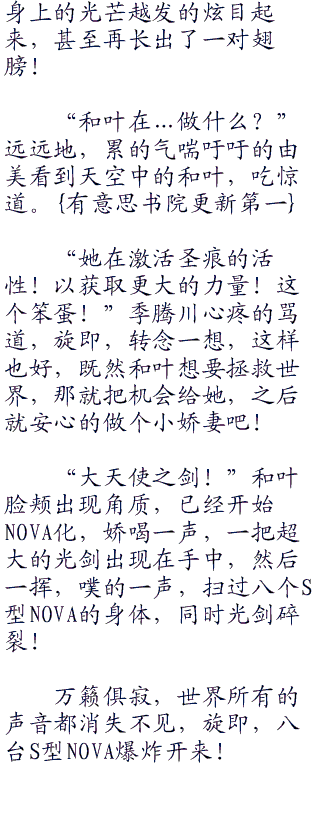 身上的光芒越发的炫目起
来，甚至再长出了一对翅
膀！
“和叶在…做什么？”
远远地，累的气喘吁吁的由
美看到天空中的和叶，吃惊
道。{有意思书院更新第一}
“她在激活圣痕的活
性！以获取更大的力量！这
个笨蛋！”季腾川心疼的骂
道，旋即，转念一想，这样
也好，既然和叶想要拯救世
界，那就把机会给她，之后
就安心的做个小娇妻吧！
“大天使之剑！”和叶
脸颊出现角质，已经开始
NOVA化，娇喝一声，一把超
大的光剑出现在手中，然后
一挥，噗的一声，扫过八个S
型NOVA的身体，同时光剑碎
裂！
万籁俱寂，世界所有的
声音都消失不见，旋即，八
台S型NOVA爆炸开来！